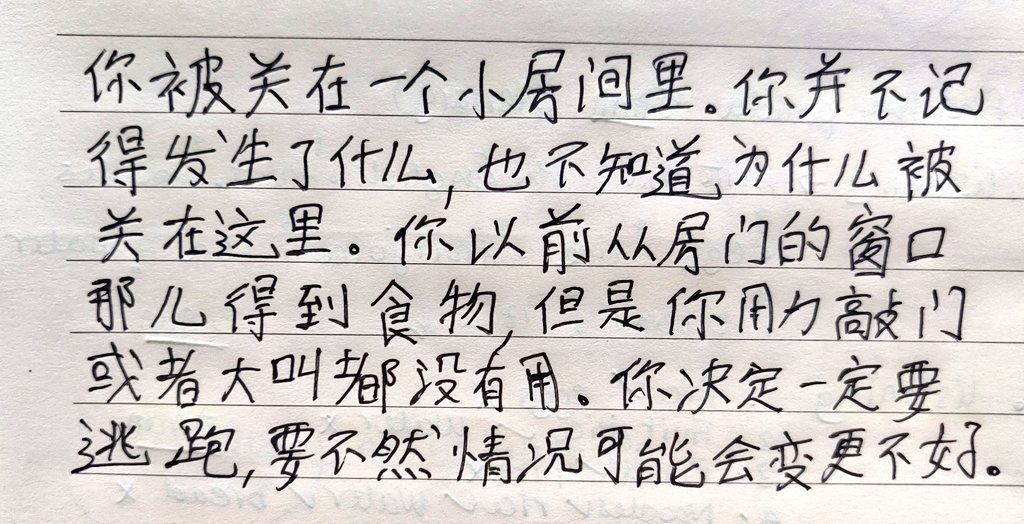 你被关在一个小房间里。你并不记
得发生了什么,也不知道为什么被
关在这里。你以前从房门的窗口
那儿得到食物,但是你用力敲门
或者大叫都没有用。你决定一定要
逃跑,要不然情况可能会变更不好。